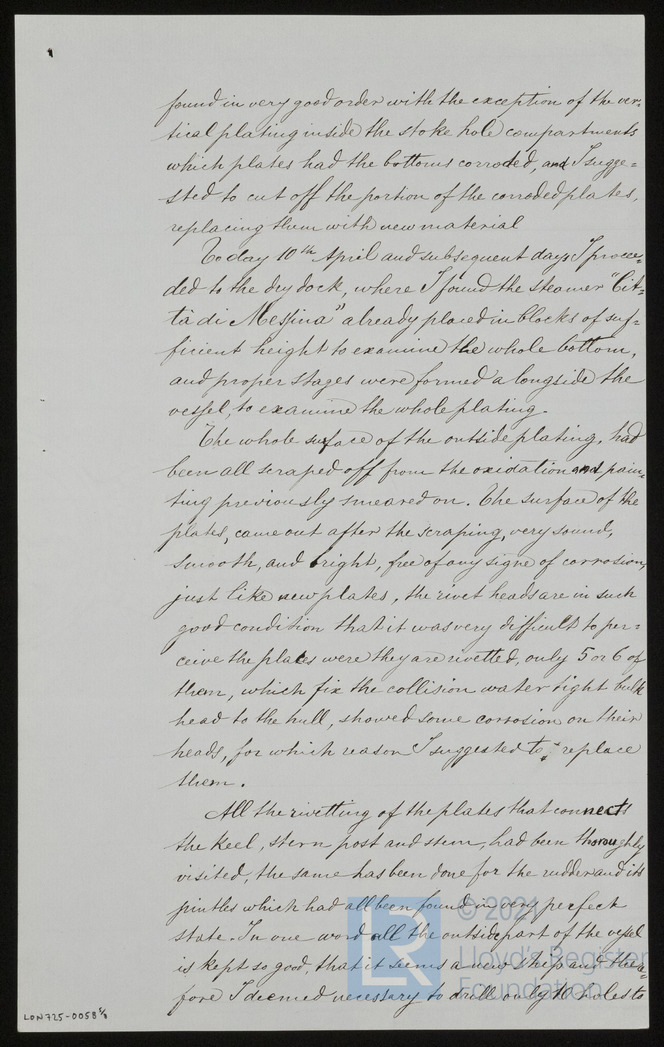 found in very good order with the exception of the ver=
tical plating inside the stoke hole compartments
which plates had the bottoms corroded, and I sugge=
sted to cut off the portion of the corroded plates,
replacing them with new material
Today 10th April and subsequent days I procee=
ded to the dry dock, where I found the steamer "Cit=
tà di Messina" already placed in blocks of suf=
ficient height to examine the whole bottom,
and proper stages were formed alongside the
vessel, to examine the whole plating.
The whole surface of the outside plating, had
been all scraped off from the oxidation and pain=
ting previously smeared on. The surface of the
plates, came out after the scraping, very sound,
smooth, and bright, free of any signe of corrosion,
just like new plates, the rivet heads are in such
good condition that it was very difficult to per=
ceive the places were they are rivetted, only 5 or 6 of
them, which fix the collision water tight bulk
head to the hull, showed some corrosion on their
heads, for which reason I suggested to replace
them.
All the rivetting of the plates that connects
the keel, stern post and stem, had been thoroughly
visited, the same has been done for the rudder and its
pintles which had all been found in very perfect
state. In one word all the outside part of the vessel
is kept so good, that it seems a new ship and there=
fore I deemed necessary to drill only 10 holes to
© 2021
Lloyd's Register
Foundation
LR
LON725-0058